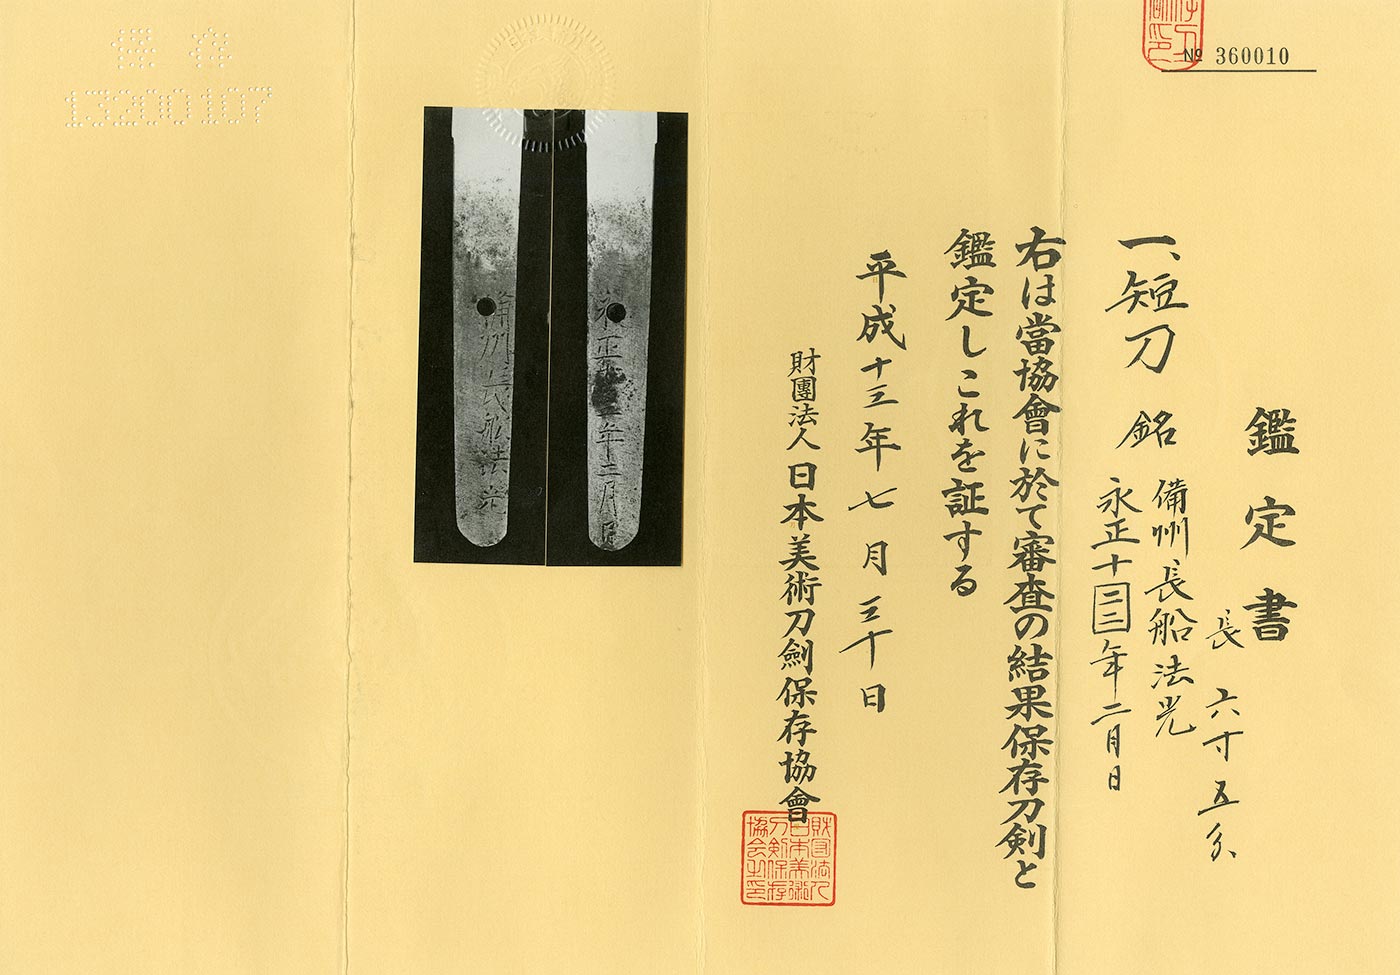 № 360010
鑑定書
一、短刀 銘 備州長船法光
永正十二二年二月日
長 六寸五分
右は當協會に於て審査の結果保存刀剣と
鑑定しこれを証する
平成十三年七月三十日
財團法人 日本美術刀劍保存協會
財団法人
日本美術
刀剣保存
協会之印
永正
年二月日
備州長船法光
保存
13200107